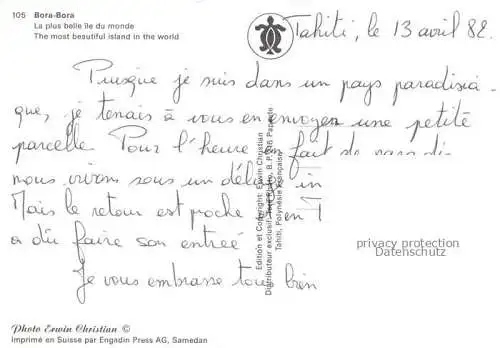 105 Bora-Bora
La plus belle île du monde
The most beautiful island in the world
Tahiti, le 13 avril 82.
Puisque je suis dans un pays paradisia-
que, je tenais à vous en envoyer une petite
parcelle. Pour l'heure en fait de paradis
nous vivons sous un déluge
Mais le retour est proche en
a dû faire son entrée
Je vous embrasse tous bien
Edition et Copyright: Erwin Christian
Distributeur exclusif: B.P. Papeete
Tahiti, Polynésie Française
privacy protection
Datenschutz
Photo Erwin Christian ©
Imprimé en Suisse par Engadin Press AG, Samedan